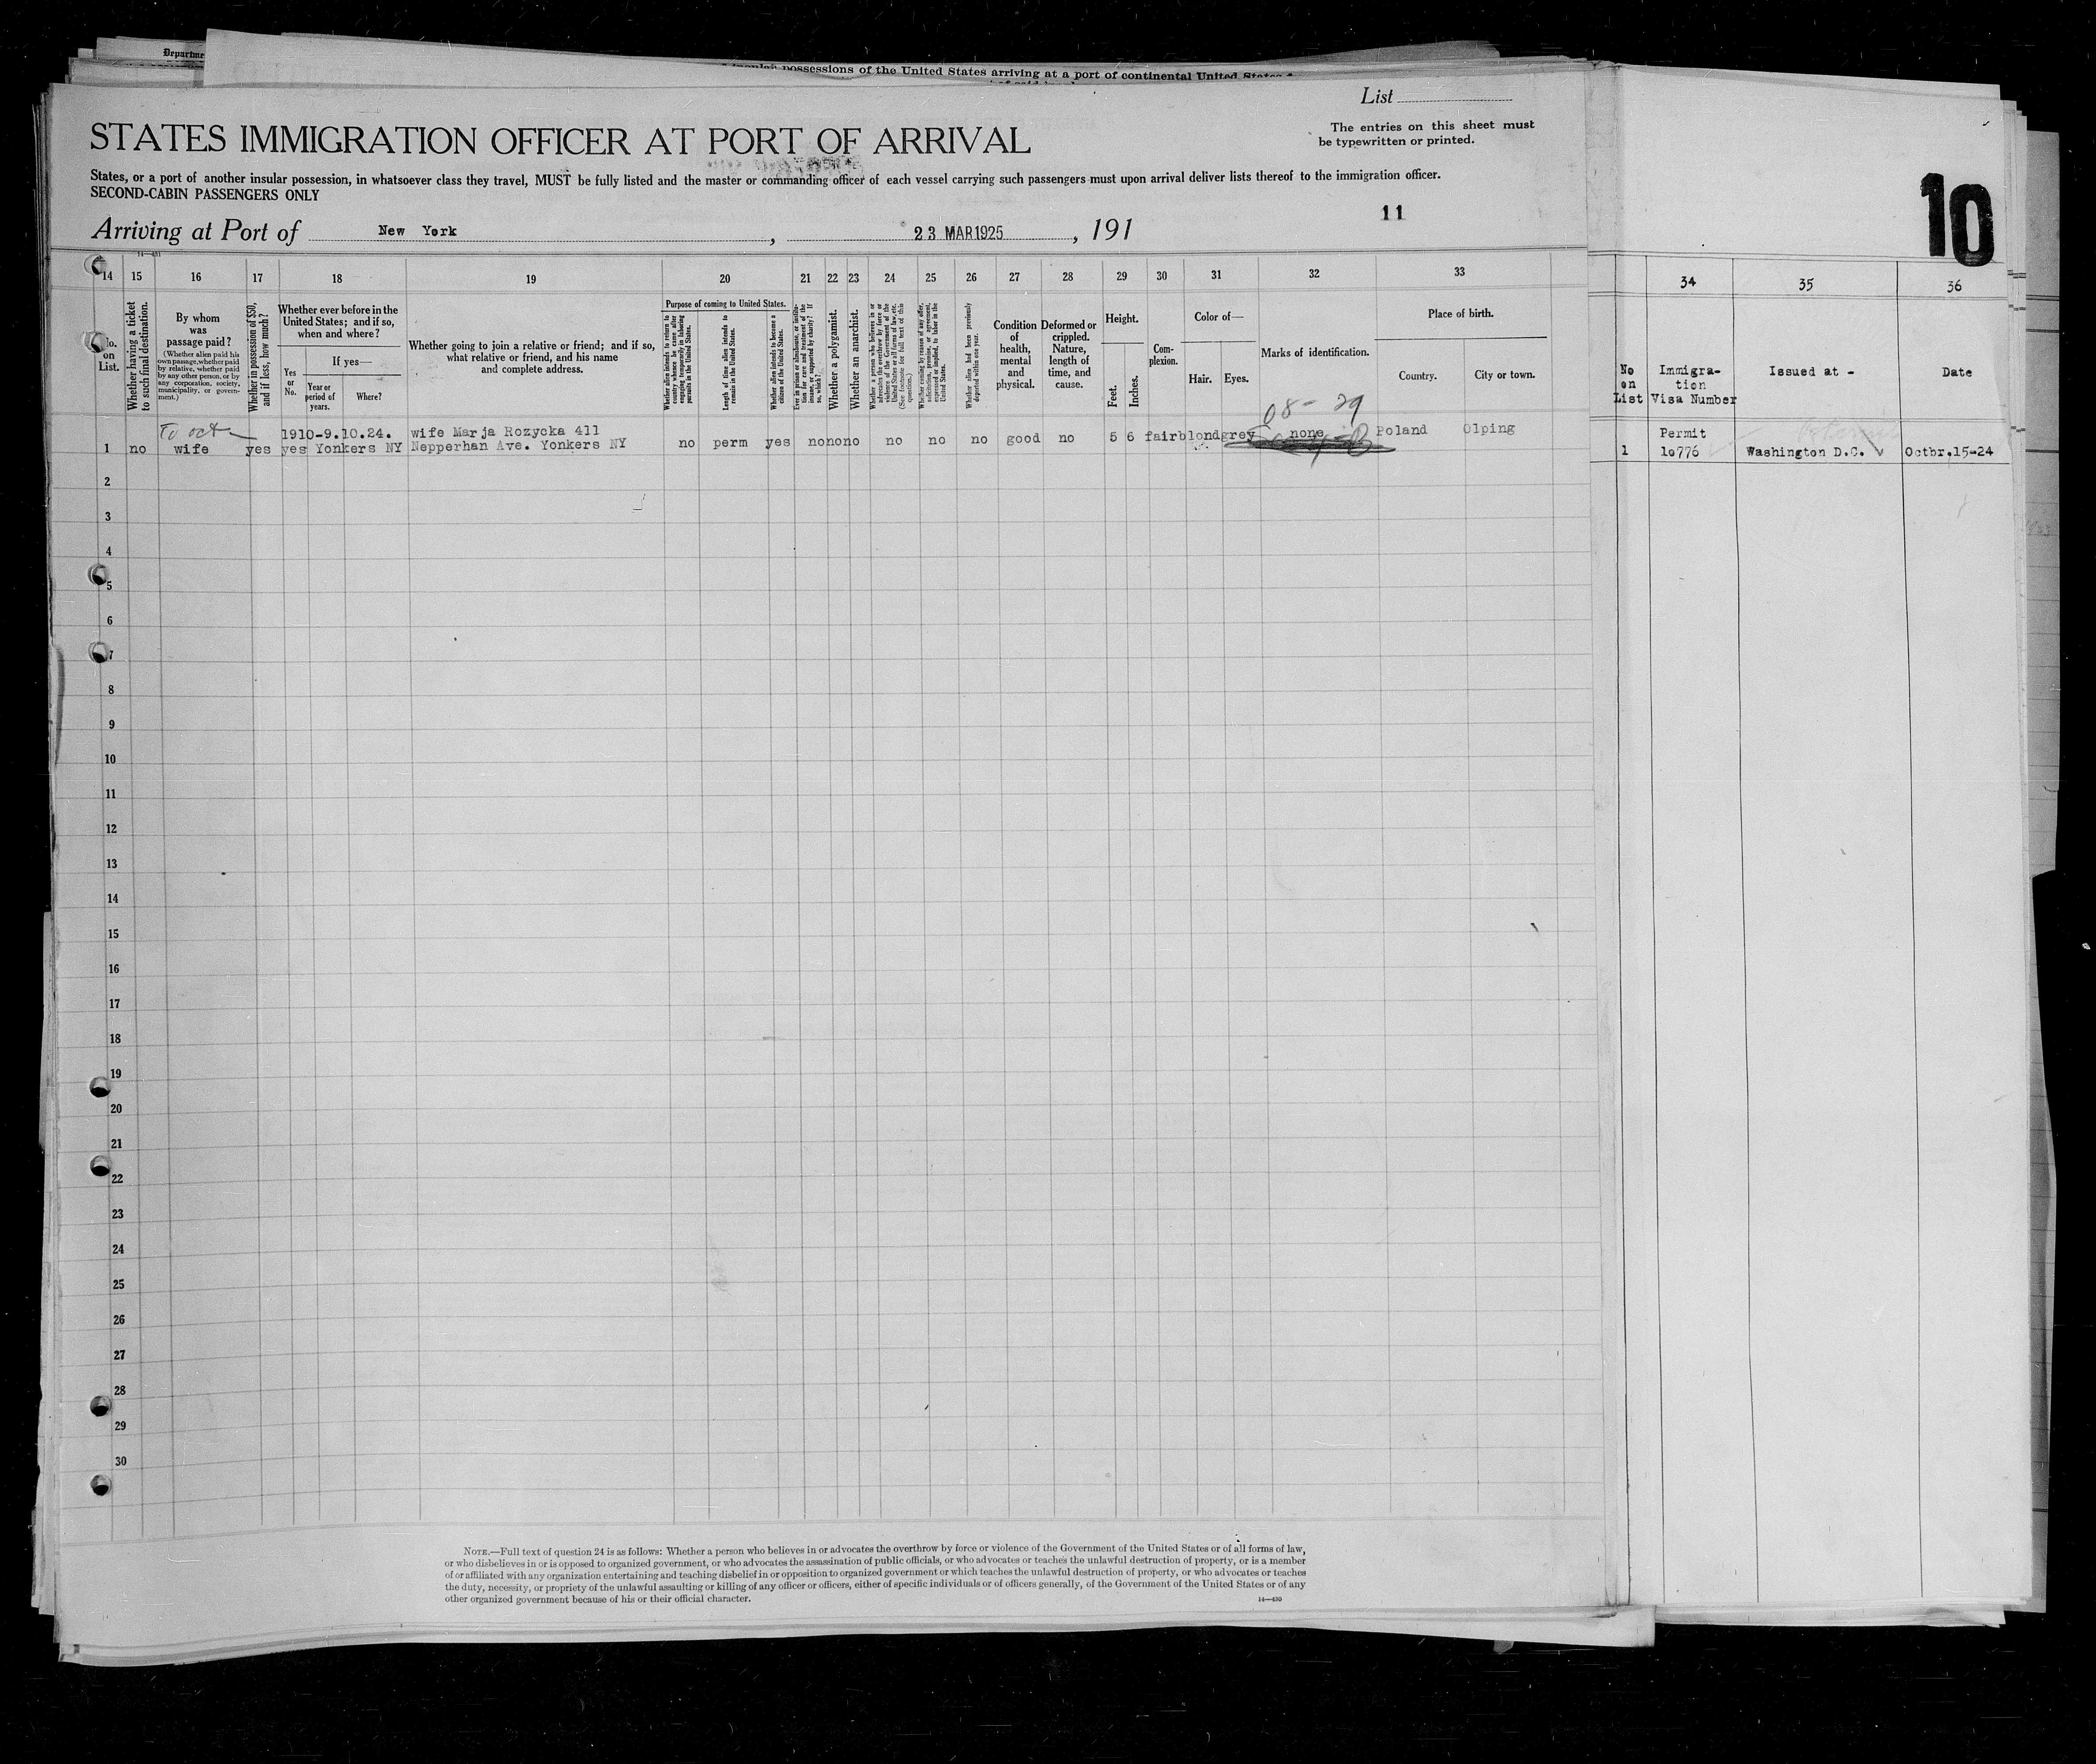 Departme
insular possessions of the United States arriving at a port of continental United States
List
STATES IMMIGRATION OFFICER AT PORT OF ARRIVAL
The entries on this sheet must
be typewritten or printed.
States, or a port of another insular possession, in whatsoever class they travel, MUST be fully listed and the master or commanding officer of each vessel carrying such passengers must upon arrival deliver lists thereof to the immigration officer.
SECOND-CABIN PASSENGERS ONLY
10
11
Arriving at Port of New York, 23 MAR 1925, 191
14 15 16 17 18 19 20 21 22 23 24 25 26 27 28 29 30 31 32 33 34 35 36
No. on List.
Whether having a ticket to such final destination.
By whom was passage paid?
(Whether alien paid his own passage, whether paid by relative, whether paid by any other person, or by any corporation, society, municipality, or government.)
Whether in possession of $50, and if less, how much?
Whether ever before in the United States; and if so, when and where?
Yes or No.
If yes—
Year or period of years.
Where?
Whether going to join a relative or friend; and if so, what relative or friend, and his name and complete address.
Purpose of coming to United States.
Whether alien intends to return to country whence he came after engaging temporarily in laboring pursuits in the United States.
Length of time alien intends to remain in the United States.
Whether alien intends to become a citizen of the United States.
Ever in prison or almshouse, or institution for care and treatment of the insane, or supported by charity? If so, which?
Whether a polygamist.
Whether an anarchist.
Whether a person who believes in or advocates the overthrow by force or violence of the Government of the United States or all forms of law, etc. (See footnote for full text of this question.)
Whether coming by reason of any offer, solicitation, promise, or agreement, expressed or implied, to labor in the United States.
Whether alien had been previously deported within one year.
Condition of health, mental and physical.
Deformed or crippled. Nature, length of time, and cause.
Height.
Feet.
Inches.
Complexion.
Color of—
Hair.
Eyes.
Marks of identification.
Place of birth.
Country.
City or town.
No on List
Immigra-
tion
Visa Number
Issued at -
Date
08- 29
1 no wife yes 1910-9.10.24. yes Yonkers NY wife Marja Rozycka 411 Nepperhan Ave. Yonkers NY no perm yes no no no no no no good no 5 6 fair blond grey none Poland Olping
1 Permit 10776 Washington D.C. Octbr.15-24
2
3
4
5
6
7
8
9
10
11
12
13
14
15
16
17
18
19
20
21
22
23
24
25
26
27
28
29
30
NOTE.—Full text of question 24 is as follows: Whether a person who believes in or advocates the overthrow by force or violence of the Government of the United States or of all forms of law,
or who disbelieves in or is opposed to organized government, or who advocates the assassination of public officials, or who advocates or teaches the unlawful destruction of property, or is a member
of or affiliated with any organization entertaining and teaching disbelief in or opposition to organized government or which teaches the unlawful destruction of property, or who advocates or teaches
the duty, necessity, or propriety of the unlawful assaulting or killing of any officer or officers, either of specific individuals or of officers generally, of the Government of the United States or of any
other organized government because of his or their official character.
14—430